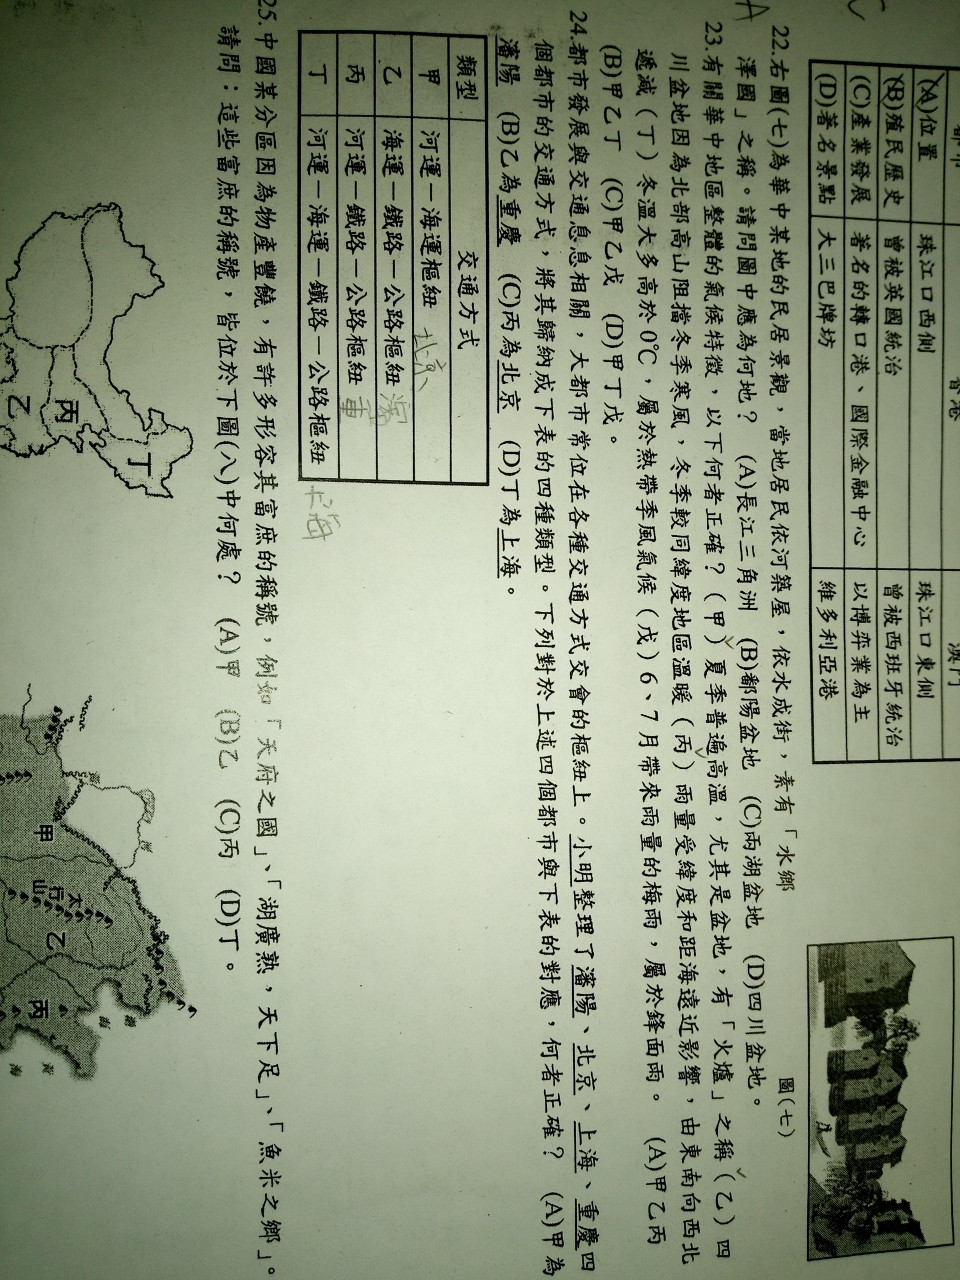 都市 香港 澳門
(A)位置 珠江口西側 珠江口東側
(B)殖民歷史 曾被英國統治 曾被西班牙統治
(C)產業發展 著名的轉口港、國際金融中心 以博弈業為主
(D)著名景點 大三巴牌坊 維多利亞港
A
22.右圖(七)為華中某地的民居景觀，當地居民依河築屋，依水成街，素有「水鄉
澤國」之稱。請問圖中應為何地？ (A)長江三角洲 (B)鄱陽盆地 (C)兩湖盆地 (D)四川盆地。
圖(七)
23.有關華中地區整體的氣候特徵，以下何者正確？(甲)夏季普遍高溫，尤其是盆地，有「火爐」之稱(乙)四
川盆地因為北部高山阻擋冬季寒風，冬季較同緯度地區溫暖(丙)雨量受緯度和距海遠近影響，由東南向西北
遞減(丁)冬溫大多高於0℃，屬於熱帶季風氣候(戊)6、7月帶來雨量的梅雨，屬於鋒面雨。 (A)甲乙丙
(B)甲乙丁 (C)甲乙戊 (D)甲丁戊。
24.都市發展與交通息息相關，大都市常位在各種交通方式交會的樞紐上。小明整理了瀋陽、北京、上海、重慶四
個都市的交通方式，將其歸納成下表的四種類型。下列對於上述四個都市與下表的對應，何者正確？ (A)甲為
瀋陽 (B)乙為重慶 (C)丙為北京 (D)丁為上海。
類型 交通方式
甲 河運—海運樞紐 北京
乙 海運—鐵路—公路樞紐
丙 河運—鐵路—公路樞紐 重
丁 河運—海運—鐵路—公路樞紐 上海
25.中國某分區因為物產豐饒，有許多形容其富庶的稱號，例如「天府之國」、「湖廣熟，天下足」、「魚米之鄉」。
請問：這些富庶的稱號，皆位於下圖(八)中何處？ (A)甲 (B)乙 (C)丙 (D)丁。
丁
丙
乙
甲
太行山
乙
丙
渤海
黃海